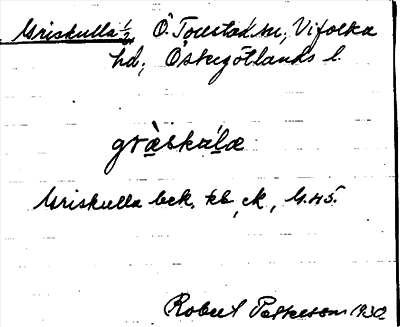 Griskulla ½ Ö. Tollstad sn, Vifolka
hd; Östergötlands l.
gràskúla
Griskulla bek. kb, ek, G. 45.
Robert Petterson 1930